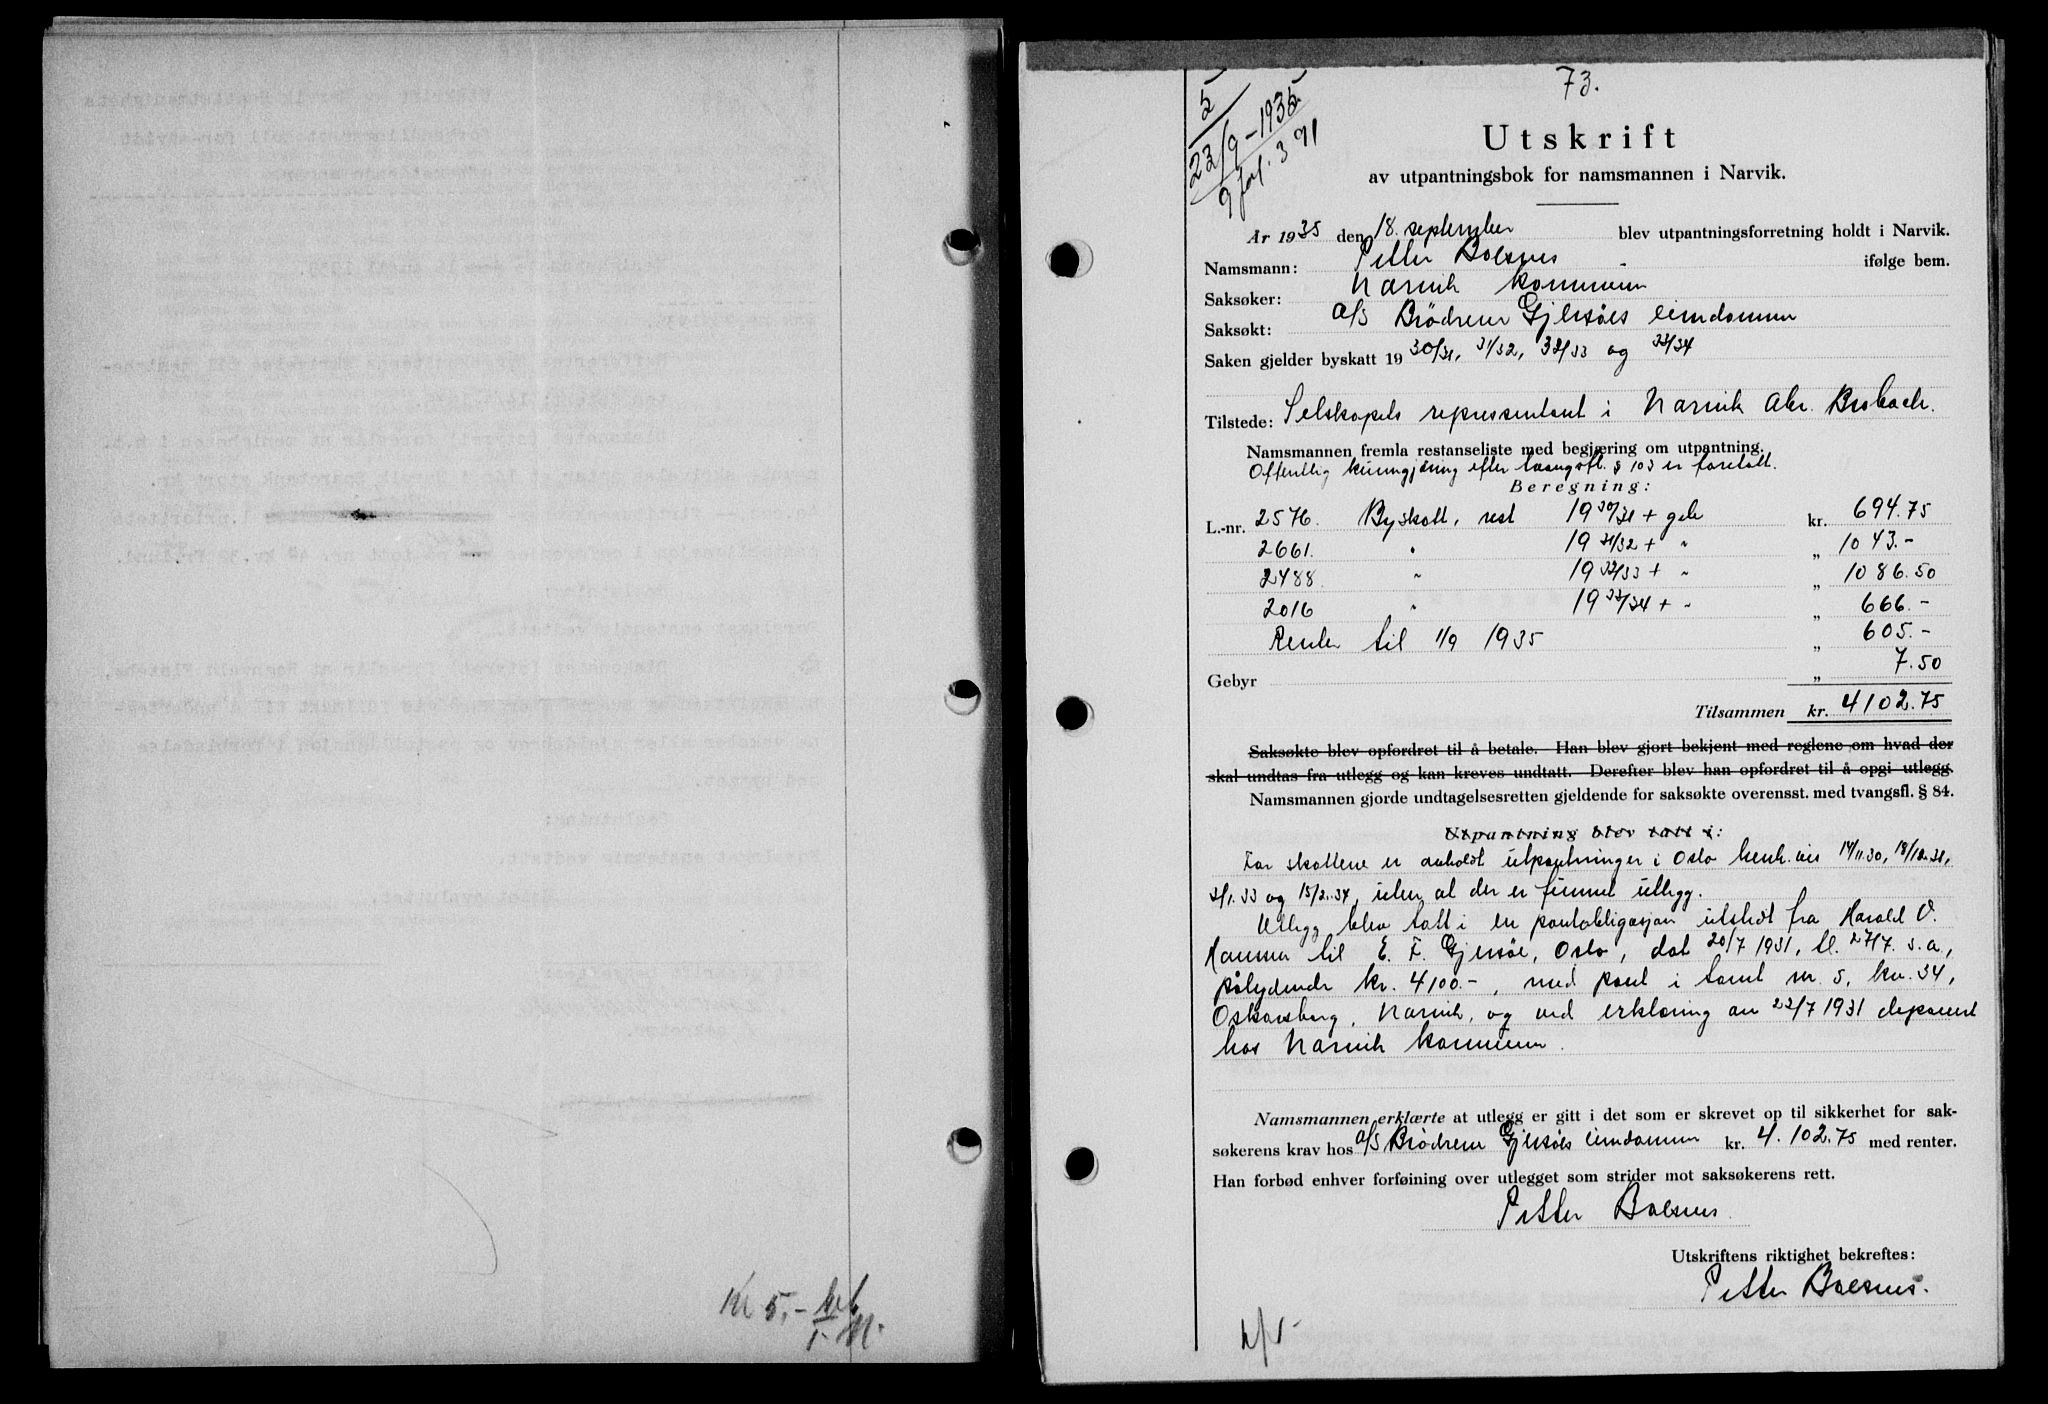 73.
5
22/9-1935
Utskrift
av utpantningsbok for namsmannen i Narvik.
År 1935 den 18. september blev utpantningsforretning holdt i Narvik.
Namsmann: Petter Bolsnes ifølge bem.
Saksøker: Narvik kommune
Saksøkt: a/s Brødrene Gjersøes eiendommer
Saken gjelder byskatt 19 30/31, 31/32, 32/33 og 33/34
Tilstede: Selskapets representant i Narvik Abr. Brobach.
Namsmannen fremla restanseliste med begjæring om utpantning.
Offentlig kunngjøring efter tvangsfl. § 103 er foretatt.
Beregning:
L.-nr. 2576. Byskatt, rest 19 30/31 + geb kr. 694.75
2661. " 19 31/32 + " „ 1043.-
2488. " 19 32/33 + " „ 1086.50
2016 " 19 33/34 + " „ 666.-
Renter til 1/9 1935 „ 605.-
Gebyr „ 7.50
Tilsammen kr. 4102.75
Saksøkte blev opfordret til å betale. Han blev gjort bekjent med reglene om hvad der
skal undtas fra utlegg og kan kreves undtatt. Derefter blev han opfordret til å opgi utlegg.
Namsmannen gjorde undtagelsesretten gjeldende for saksøkte overensst. med tvangsfl. § 84.
Utpantning blev tatt i:
For skattene er avholdt utpantninger i Oslo henh.vis 14/11.30, 18/12.31,
3/1.33 og 15/2.34, uten at der er funnet utlegg.
Utlegg blev tatt i en pantobligasjon utstedt fra Harald V.
Hamma til E. F. Gjersøe, Oslo, dat 20/7 1931, tl. 27/7. s.a.,
pålydende kr. 4100.-, med pant i tomt nr. 5, kv. 34,
Oskarsborg, Narvik, og ved erklæring av 22/7 1931 deponert
hos Narvik kommune.
Namsmannen erklærte at utlegg er gitt i det som er skrevet op til sikkerhet for sak-
søkerens krav hos a/s Brødrene Gjersøes eiendommer kr. 4.102.75 med renter.
Han forbød enhver forføining over utlegget som strider mot saksøkerens rett.
Petter Bolsnes.
Utskriftens riktighet bekreftes:
Petter Bolsnes.
Kr 5.-